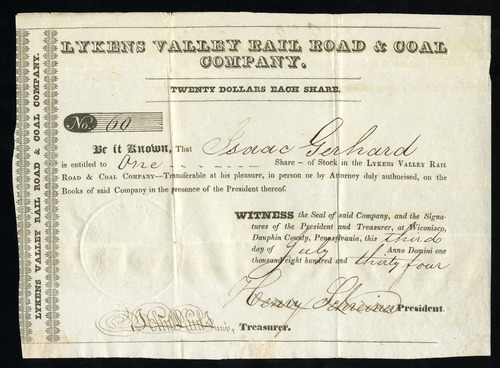 LYKENS VALLEY RAIL ROAD & COAL COMPANY.
LYKENS VALLEY RAIL ROAD & COAL
COMPANY.
TWENTY DOLLARS EACH SHARE.
No. 60
Be it Known, That Isaac Gerhard
is entitled to One Share – of Stock in the LYKENS VALLEY RAIL
ROAD & COAL COMPANY—Transferable at his pleasure, in person or by Attorney duly authorised, on the
Books of said Company in the presence of the President thereof.
WITNESS the Seal of said Company, and the Signa-
tures of the President and Treasurer, at Wiconisco,
Dauphin County, Pennsylvania, this third
day of July Anno Domini one
thousand eight hundred and thirty four
Henry Schreiner President.
Treasurer.